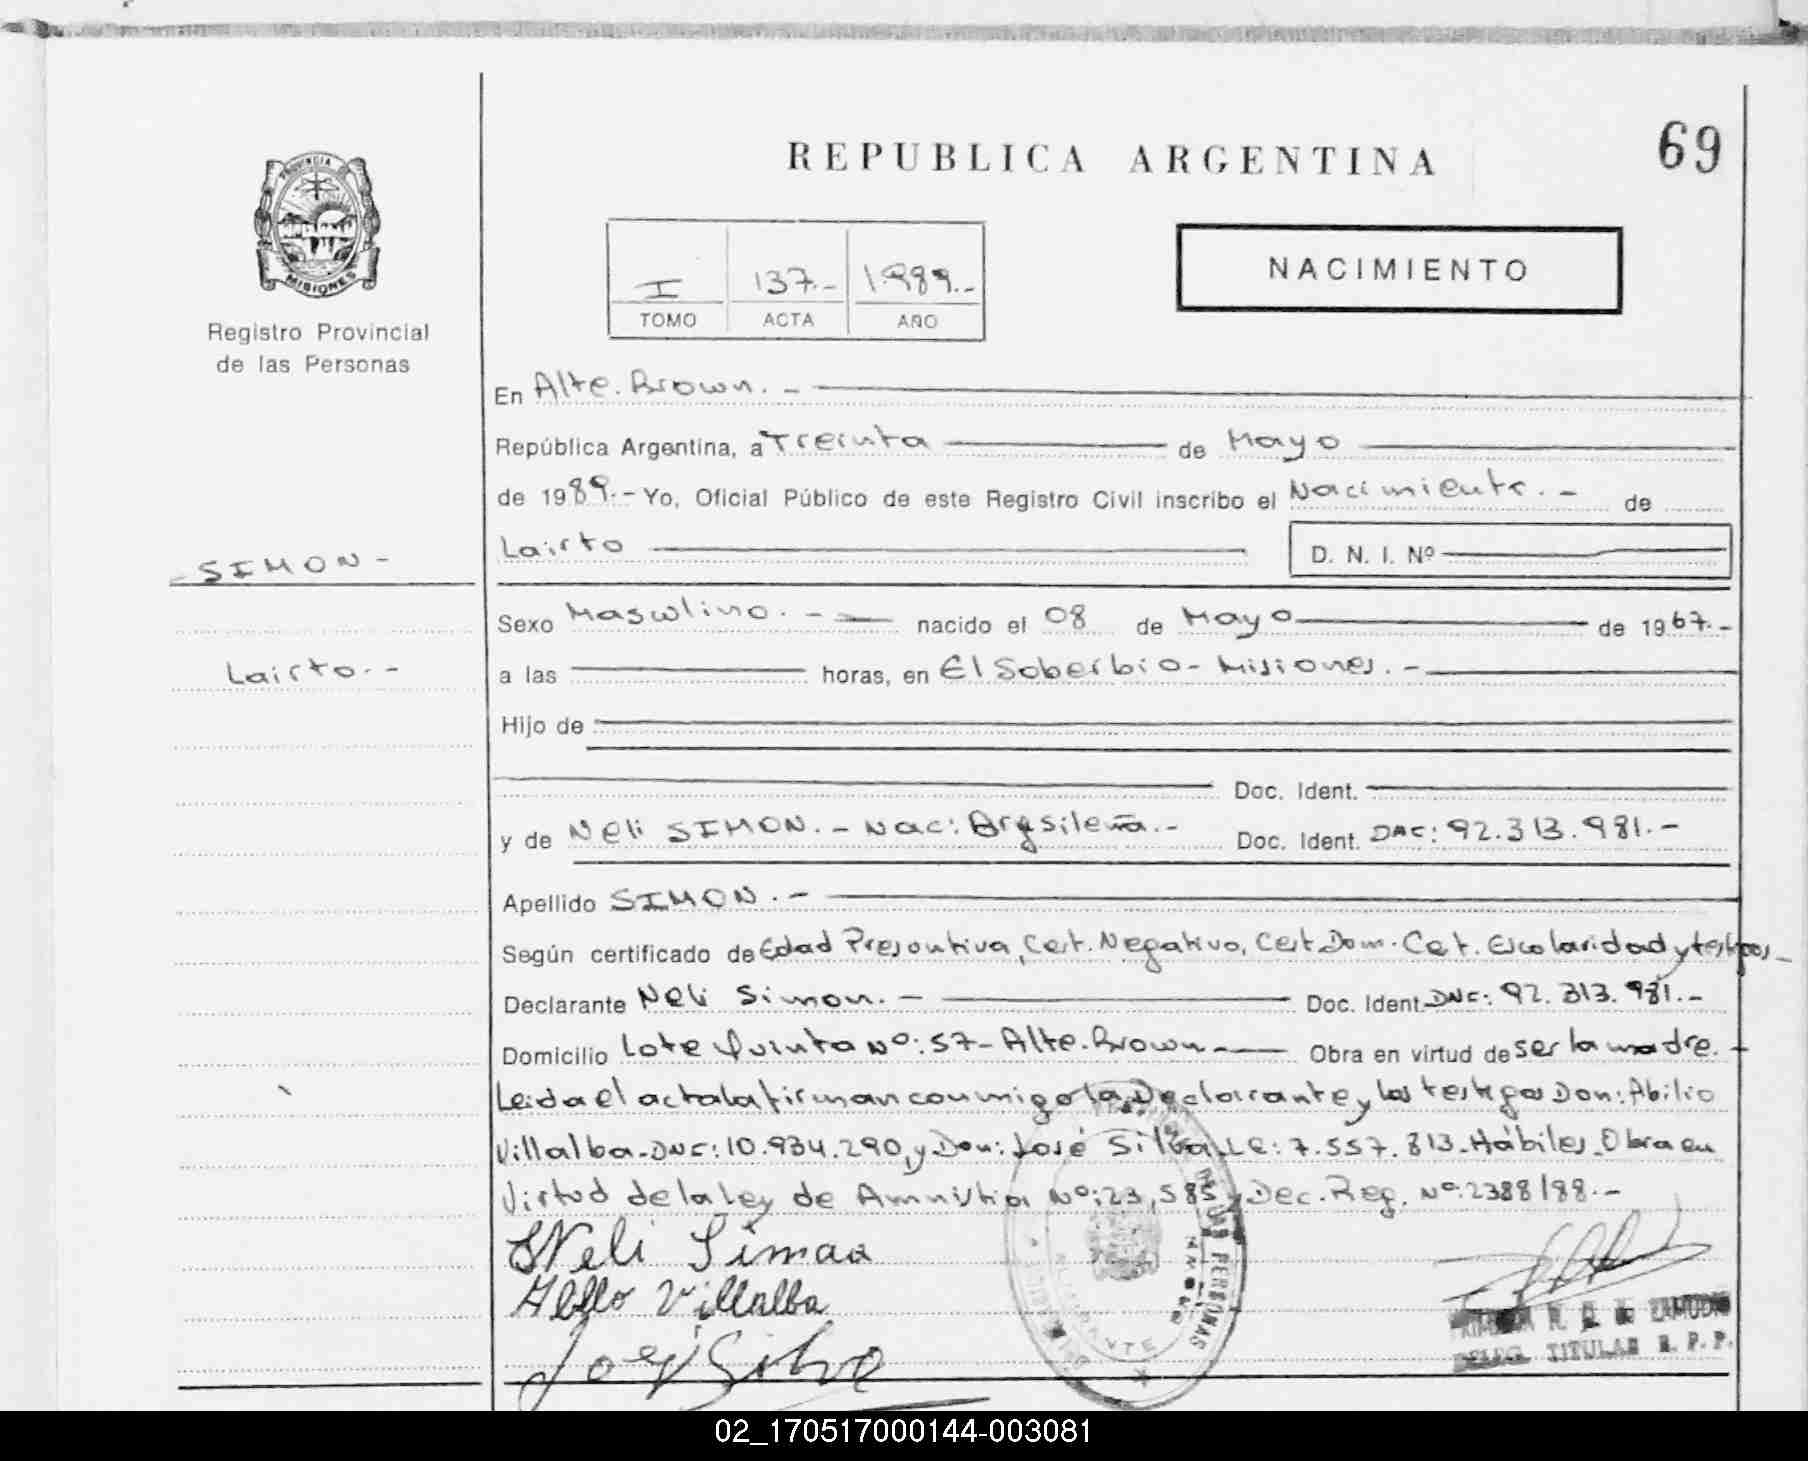 REPUBLICA ARGENTINA
69
PROVINCIA
MISIONES
Registro Provincial
de las Personas
I 137.- 1.989.-
TOMO ACTA AÑO
NACIMIENTO
En Alte. Brown. -
República Argentina, a Treinta de Mayo
de 1989.- Yo, Oficial Público de este Registro Civil inscribo el Nacimiento. - de
Lairto D. N. I. Nº
- SIMON -
Lairto. -
Sexo Masculino. - nacido el 08 de Mayo de 1967.-
a las horas, en El Soberbio - Misiones. -
Hijo de
Doc. Ident.
y de Neli SIMON. - Nac: Doc. Ident. 92.313.981.-
Apellido SIMON. -
Según certificado de Edad Presuntiva, Cert. Negativo, Cert Dom. Cet. Escolaridad y testigos -
Declarante Neli Simon. - Doc. Ident 92.313.981.-
Domicilio Lote Quinta Nº: 57 - Alte. Brown Obra en virtud de ser la madre.
Leida el acta la firman conmigo la Declarante y los testigos Don: Abilio
Villalba - 10.934.290, y Don: José Silva LE: 7.557.813 - Hábiles - Obra en
Virtud de la Ley de Amnistia Nº: 23,585 y Dec. Reg. Nº 2388/88.-
Neli Simaa
Villalba
José Silva
PERSONAS
ZAMUDIO
TITULAR R. P. P.
02_170517000144-003081